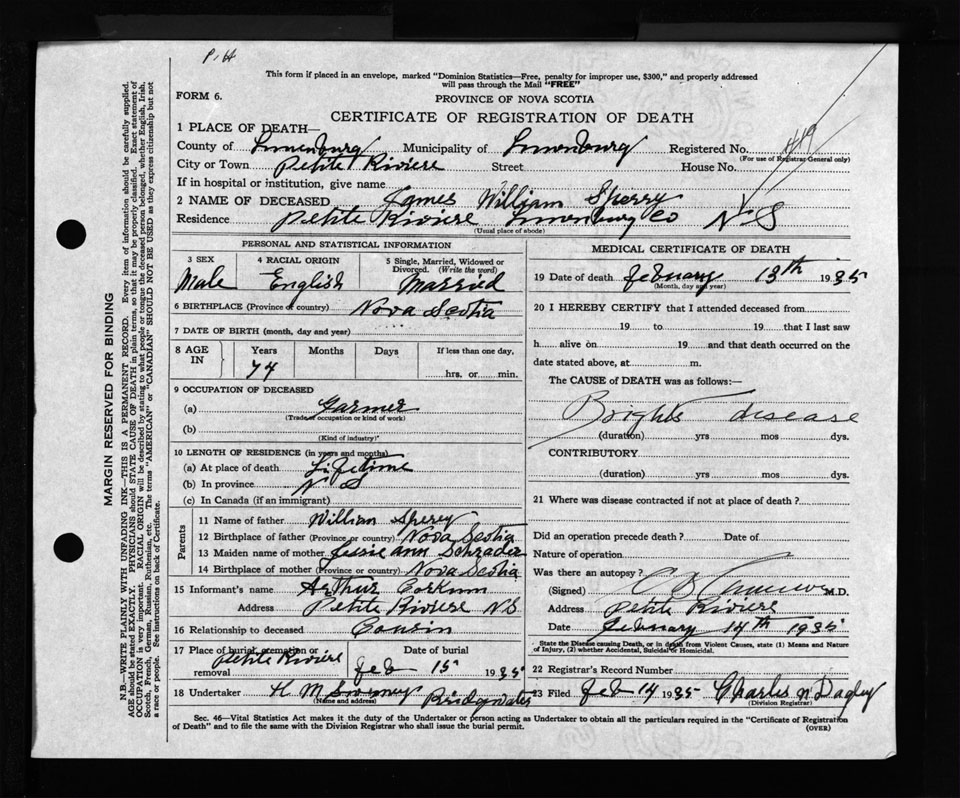 P. H
This form if placed in an envelope, marked "Dominion Statistics—Free, penalty for improper use, $300," and properly addressed
will pass through the Mail "FREE"
FORM 6.
PROVINCE OF NOVA SCOTIA
CERTIFICATE OF REGISTRATION OF DEATH
1 PLACE OF DEATH—
County of Lunenburg Municipality of Lunenburg Registered No. 419
(For use of Registrar-General only)
City or Town Petite Riviere Street House No.
If in hospital or institution, give name
2 NAME OF DECEASED James William Sperry
Residence Petite Riviere Lunenburg Co N S
(Usual place of abode)
PERSONAL AND STATISTICAL INFORMATION
3 SEX 4 RACIAL ORIGIN 5 Single, Married, Widowed or
Divorced. (Write the word)
Male English Married
6 BIRTHPLACE (Province or country) Nova Scotia
7 DATE OF BIRTH (month, day and year)
8 AGE IN Years Months Days If less than one day,
74 hrs. or min.
9 OCCUPATION OF DECEASED
(a) Farmer
(Trade, occupation or kind of work)
(b)
(Kind of industry)
10 LENGTH OF RESIDENCE (in years and months)
(a) At place of death Lifetime
(b) In province N S
(c) In Canada (if an immigrant)
Parents
11 Name of father William Sperry
12 Birthplace of father (Province or country) Nova Scotia
13 Maiden name of mother Ann Schrader
14 Birthplace of mother (Province or country) Nova Scotia
15 Informant's name Arthur Corkum
Address Petite Riviere N S
16 Relationship to deceased Cousin
17 Place of burial, cremation or removal Date of burial
Petite Riviere Feb 15 1935
18 Undertaker H M Bridgwater
(Name and address)
MEDICAL CERTIFICATE OF DEATH
19 Date of death February 13th 1935
(Month, day and year)
20 I HEREBY CERTIFY that I attended deceased from
19 to 19 that I last saw
h alive on 19 and that death occurred on the
date stated above, at m.
The CAUSE of DEATH was as follows:—
Brights disease
(duration) yrs mos dys.
CONTRIBUTORY
(duration) yrs mos dys.
21 Where was disease contracted if not at place of death?
Did an operation precede death? Date of
Nature of operation
Was there an autopsy?
(Signed) M.D.
Address Petite Riviere
Date February 14th 1935
State the Disease causing Death, or in death from Violent Causes, state (1) Means and Nature
of Injury, (2) whether Accidental, Suicidal or Homicidal.
22 Registrar's Record Number
23 Filed Feb 14 1935 Charles N Dagley
(Division Registrar)
Sec. 46—Vital Statistics Act makes it the duty of the Undertaker or person acting as Undertaker to obtain all the particulars required in the "Certificate of Registration
of Death" and to file the same with the Division Registrar who shall issue the burial permit.
(OVER)
MARGIN RESERVED FOR BINDING
N.B.—WRITE PLAINLY WITH UNFADING INK—THIS IS A PERMANENT RECORD. Every item of information should be carefully supplied.
AGE should be stated EXACTLY. PHYSICIANS should STATE CAUSE OF DEATH in plain terms, so that it may be properly classified. Exact statement of
OCCUPATION is very important. RACIAL ORIGIN will be described by stating to what people or tongue the deceased person belonged, whether English, Irish,
Scotch, French, German, Russian, Ruthenian, etc. The terms "AMERICAN" or "CANADIAN" SHOULD NOT BE USED as they express citizenship but not
a race or people. See instructions on back of Certificate.